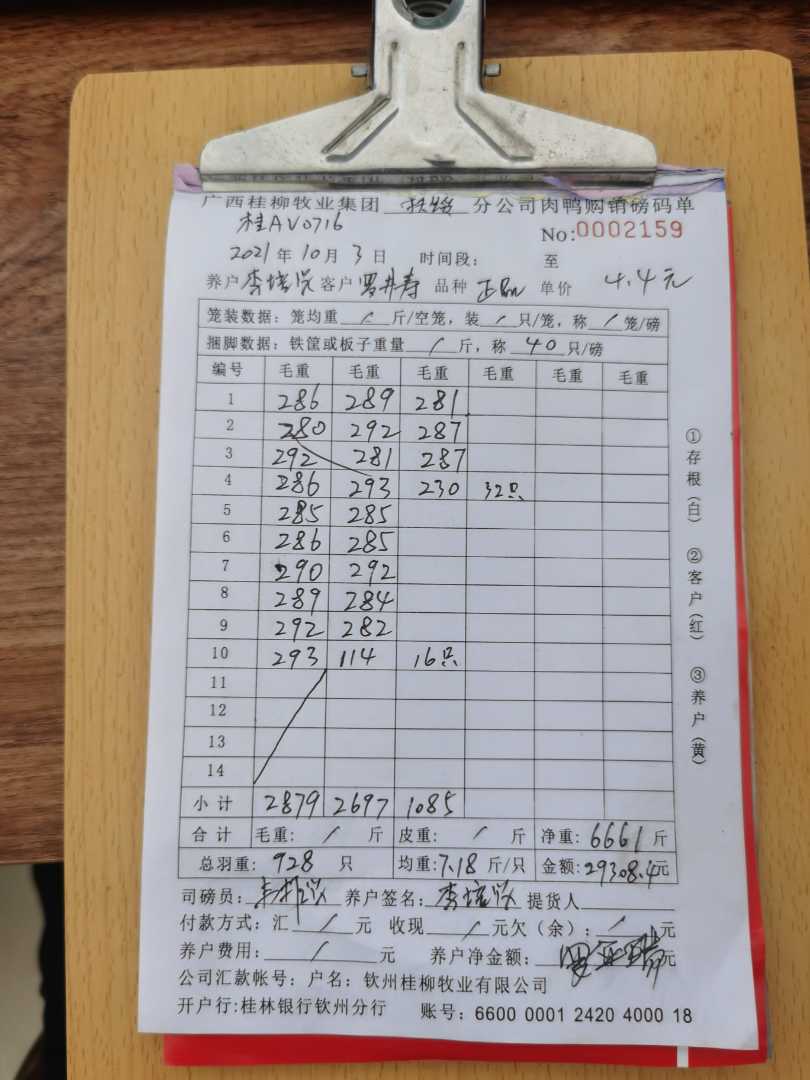 广西桂柳牧业集团 分公司肉鸭购销磅码单
桂AV0716 No:0002159
2021年10月3日 时间段: 至
养户 李培兴 客户 罗井寿 品种 正品 单价 4.4元
笼装数据: 笼均重 / 斤/空笼, 装 / 只/笼, 称 / 笼/磅
捆脚数据: 铁筐或板子重量 / 斤, 称 40 只/磅
编号 毛重 毛重 毛重 毛重 毛重 毛重
1 286 289 281
2 280 292 287
3 292 281 287
4 286 293 230 32只
5 285 285
6 286 285
7 290 292
8 289 284
9 292 282
10 293 114 16只
11
12
13
14
小计 2879 2697 1085
合计 毛重: / 斤 皮重: / 斤 净重: 6661 斤
总羽重: 928 只 均重: 7.18 斤/只 金额: 29308.4元
司磅员: 养户签名: 李培兴 提货人
付款方式: 汇 / 元 收现 / 元欠(余): / 元
养户费用: / 元 养户净金额: 元
公司汇款帐号: 户名: 钦州桂柳牧业有限公司
开户行:桂林银行钦州分行 账号: 6600 0001 2420 4000 18
①存根(白) ②客户(红) ③养户(黄)